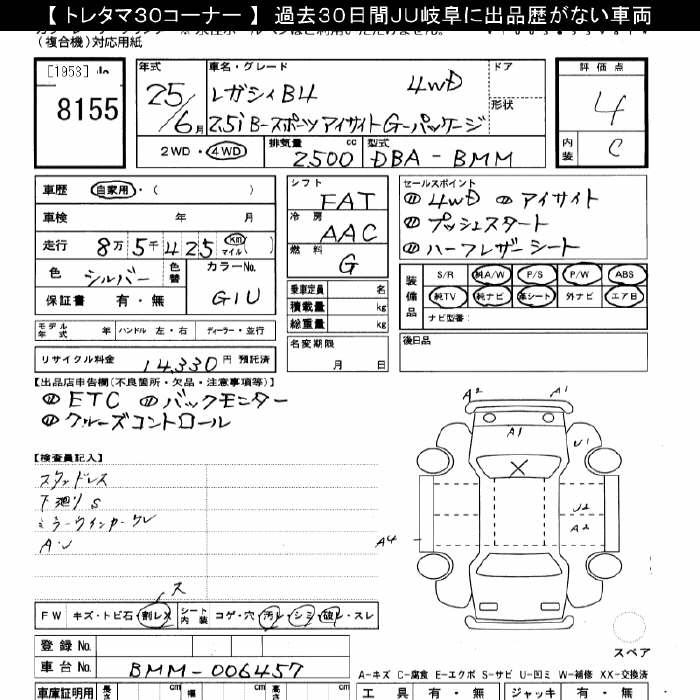 【トレタマ30コーナー】過去30日間JU岐阜に出品歴がない車両
(複合機)対応用紙
[1953]
8155
年式
25/6月
車名・グレード
レガシィB4 4WD
2.5i B-スポーツアイサイトG-パッケージ
ドア
形状
評価点
4
内装
C
2WD・4WD
排気量
2500 cc
型式
DBA-BMM
車歴 自家用・( )
車検 年 月
走行 8万5千425 Km マイル( )
色 シルバー 色替 カラーNo. G1U
保証書 有・無
シフト FAT
冷房 AAC
燃料 G
乗車定員 名
積載量 kg
総重量 kg
名変期限
月 日
セールスポイント
4WD アイサイト
プッシュスタート
ハーフレザーシート
装備品
S/R 純A/W P/S P/W ABS
純TV 純ナビ 革シート 外ナビ エアB
ナビ型番:
後日品
モデル年式 年 ハンドル 左・右 ディーラー・並行
リサイクル料金 14,330 円 預託済
【出品店申告欄(不良箇所・欠品・注意事項等)】
ETC バックモンター
クルーズコントロール
【検査員記入】
スタッドレス
下廻りS
ミラーウインカーワレ
A・U
ス
FW キズ・トビ石・割レ シート内装 コゲ・穴・汚レ・シミ・破レ・スレ
登録No.
車台No. BMM-006457
車庫証明用 長さ cm 幅 cm cm
A2 A1
A1
U1
U2
A2
A4
スペア
A-キズ C-腐食 E-エクボ S-サビ U-凹ミ W-補修 XX-交換済
工具 有・無 ジャッキ 有・無